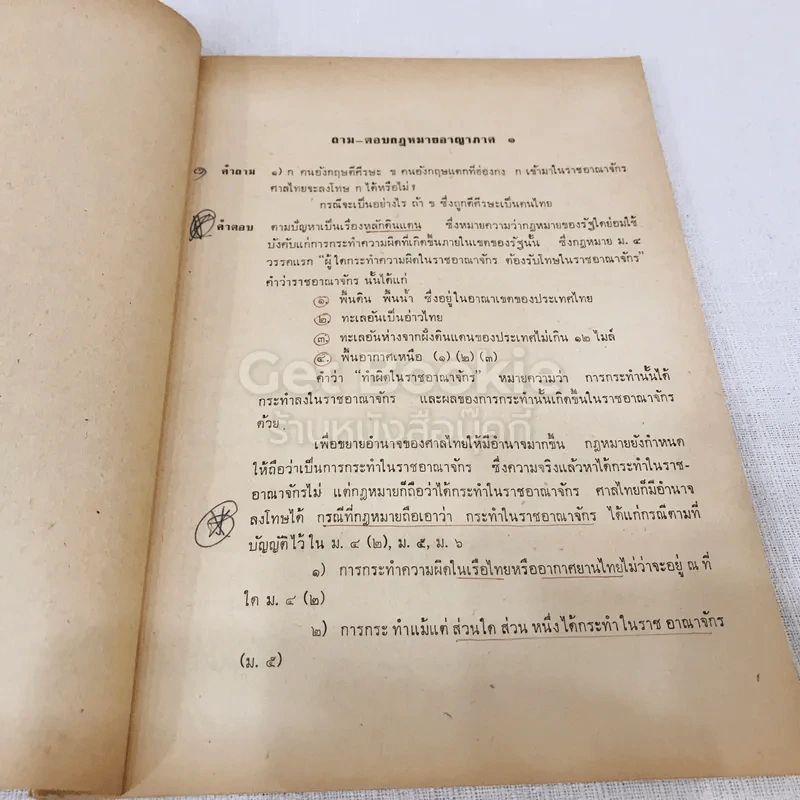 ถาม-ตอบกฎหมายอาญาภาค ๑
คำถาม ๑) ก คนอังกฤษตีศีรษะ ข คนอังกฤษแตกที่ฮ่องกง ก เข้ามาในราชอาณาจักร
ศาลไทยจะลงโทษ ก ได้หรือไม่?
กรณีจะเป็นอย่างไร ถ้า ข ซึ่งถูกตีศีรษะเป็นคนไทย
คำตอบ ตามปัญหาเป็นเรื่องหลักดินแดน ซึ่งหมายความว่ากฎหมายของรัฐใดย่อมใช้
บังคับแก่การกระทำความผิดที่เกิดขึ้นภายในเขตของรัฐนั้น ซึ่งกฎหมาย ม. ๔
วรรคแรก "ผู้ใดกระทำความผิดในราชอาณาจักร ต้องรับโทษในราชอาณาจักร"
คำว่าราชอาณาจักร นั้นได้แก่
๑. พื้นดิน พื้นน้ำ ซึ่งอยู่ในอาณาเขตของประเทศไทย
๒. ทะเลอันเป็นอ่าวไทย
๓. ทะเลอันห่างจากฝั่งดินแดนของประเทศไม่เกิน ๑๒ ไมล์
๔. พื้นอากาศเหนือ (๑) (๒) (๓)
คำว่า "ทำผิดในราชอาณาจักร" หมายความว่า การกระทำนั้นได้
กระทำลงในราชอาณาจักร และผลของการกระทำนั้นเกิดขึ้นในราชอาณาจักร
ด้วย
GetBookie
ร้านหนังสือบุ๊คกี้
เพื่อขยายอำนาจของศาลไทยให้มีอำนาจมากขึ้น กฎหมายยังกำหนด
ให้ถือว่าเป็นการกระทำในราชอาณาจักร ซึ่งความจริงแล้วหาได้กระทำในราช-
อาณาจักรไม่ แต่กฎหมายก็ถือว่าได้กระทำในราชอาณาจักร ศาลไทยก็มีอำนาจ
ลงโทษได้ กรณีที่กฎหมายถือเอาว่า กระทำในราชอาณาจักร ได้แก่กรณีตามที่
บัญญัติไว้ ใน ม. ๔ (๒), ม. ๕, ม. ๖
๑) การกระทำความผิดในเรือไทยหรืออากาศยานไทยไม่ว่าจะอยู่ ณ ที่
ใด ม. ๔ (๒)
๒) การกระ ทำแม้แต่ ส่วนใด ส่วน หนึ่งได้กระทำในราช อาณาจักร
(ม. ๕)